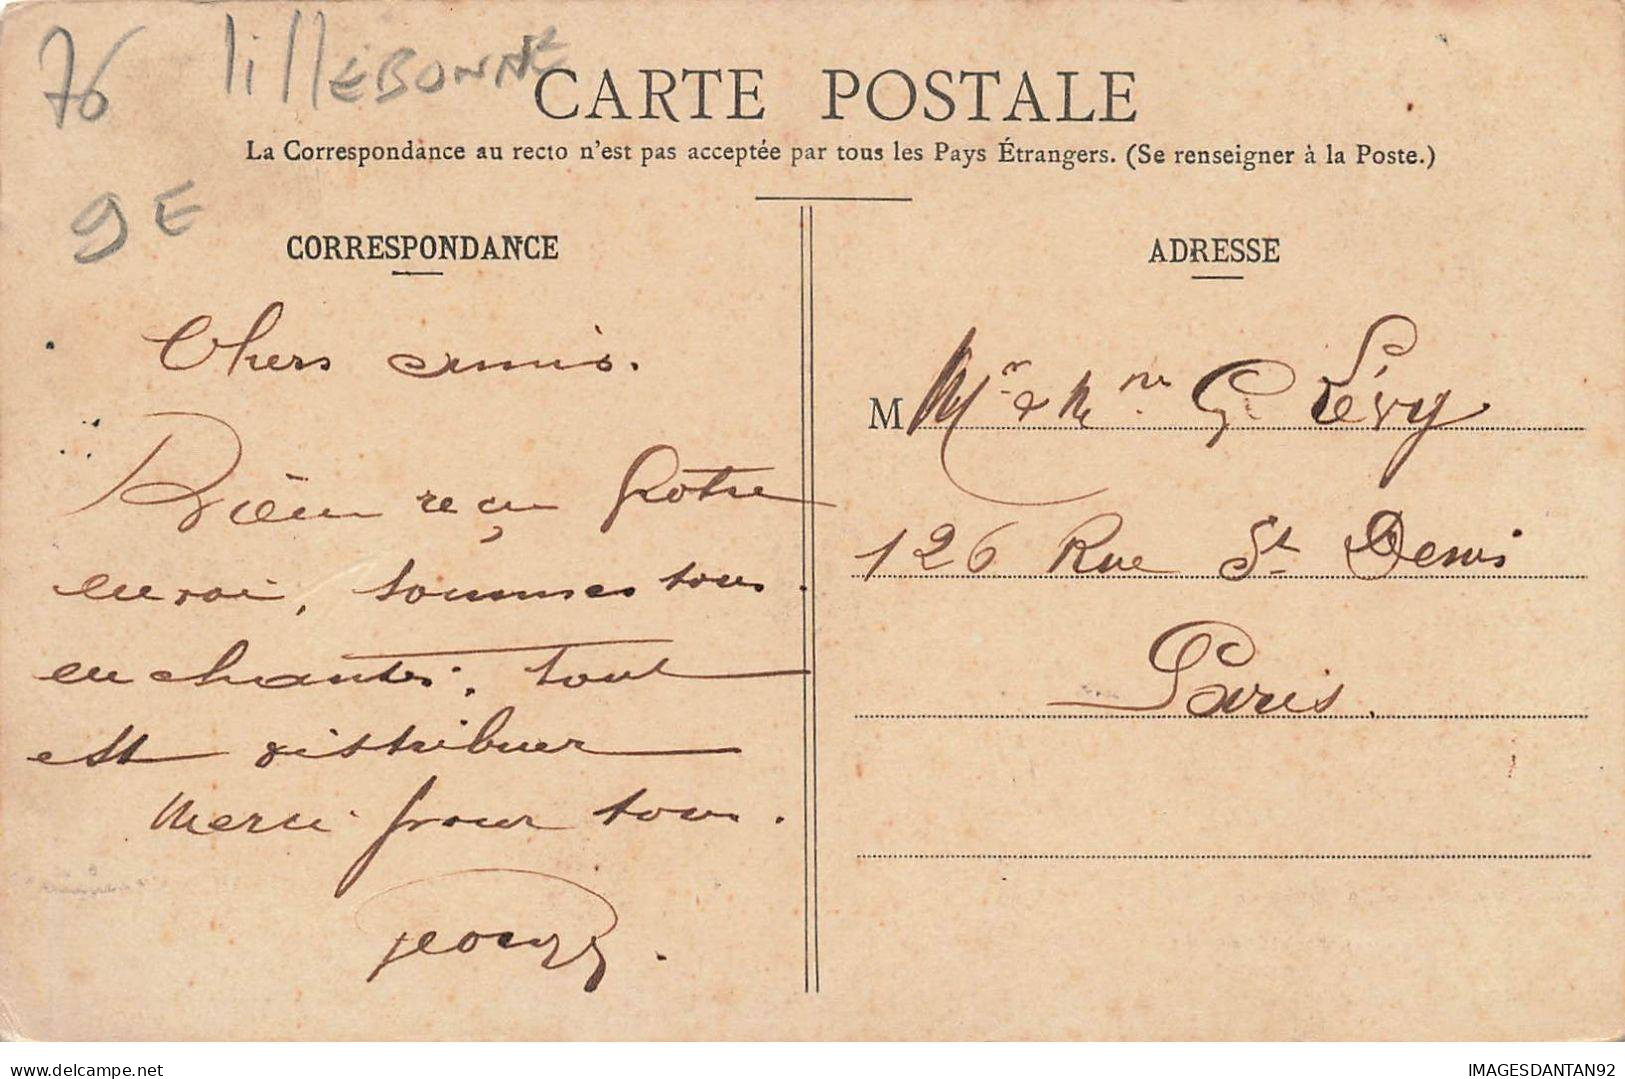 76 lillEBONNE
CARTE POSTALE
La Correspondance au recto n'est pas acceptée par tous les Pays Étrangers. (Se renseigner à la Poste.)
9 E
CORRESPONDANCE
Chers amis.
Bien reçu votre
envoi, sommes tous
enchantés, tout
est distribuer
Merci pour tous.
ADRESSE
M Mr & Mme G. Lévy
126 Rue St Denis
Paris.
www.delcampe.net
IMAGESDANTAN92